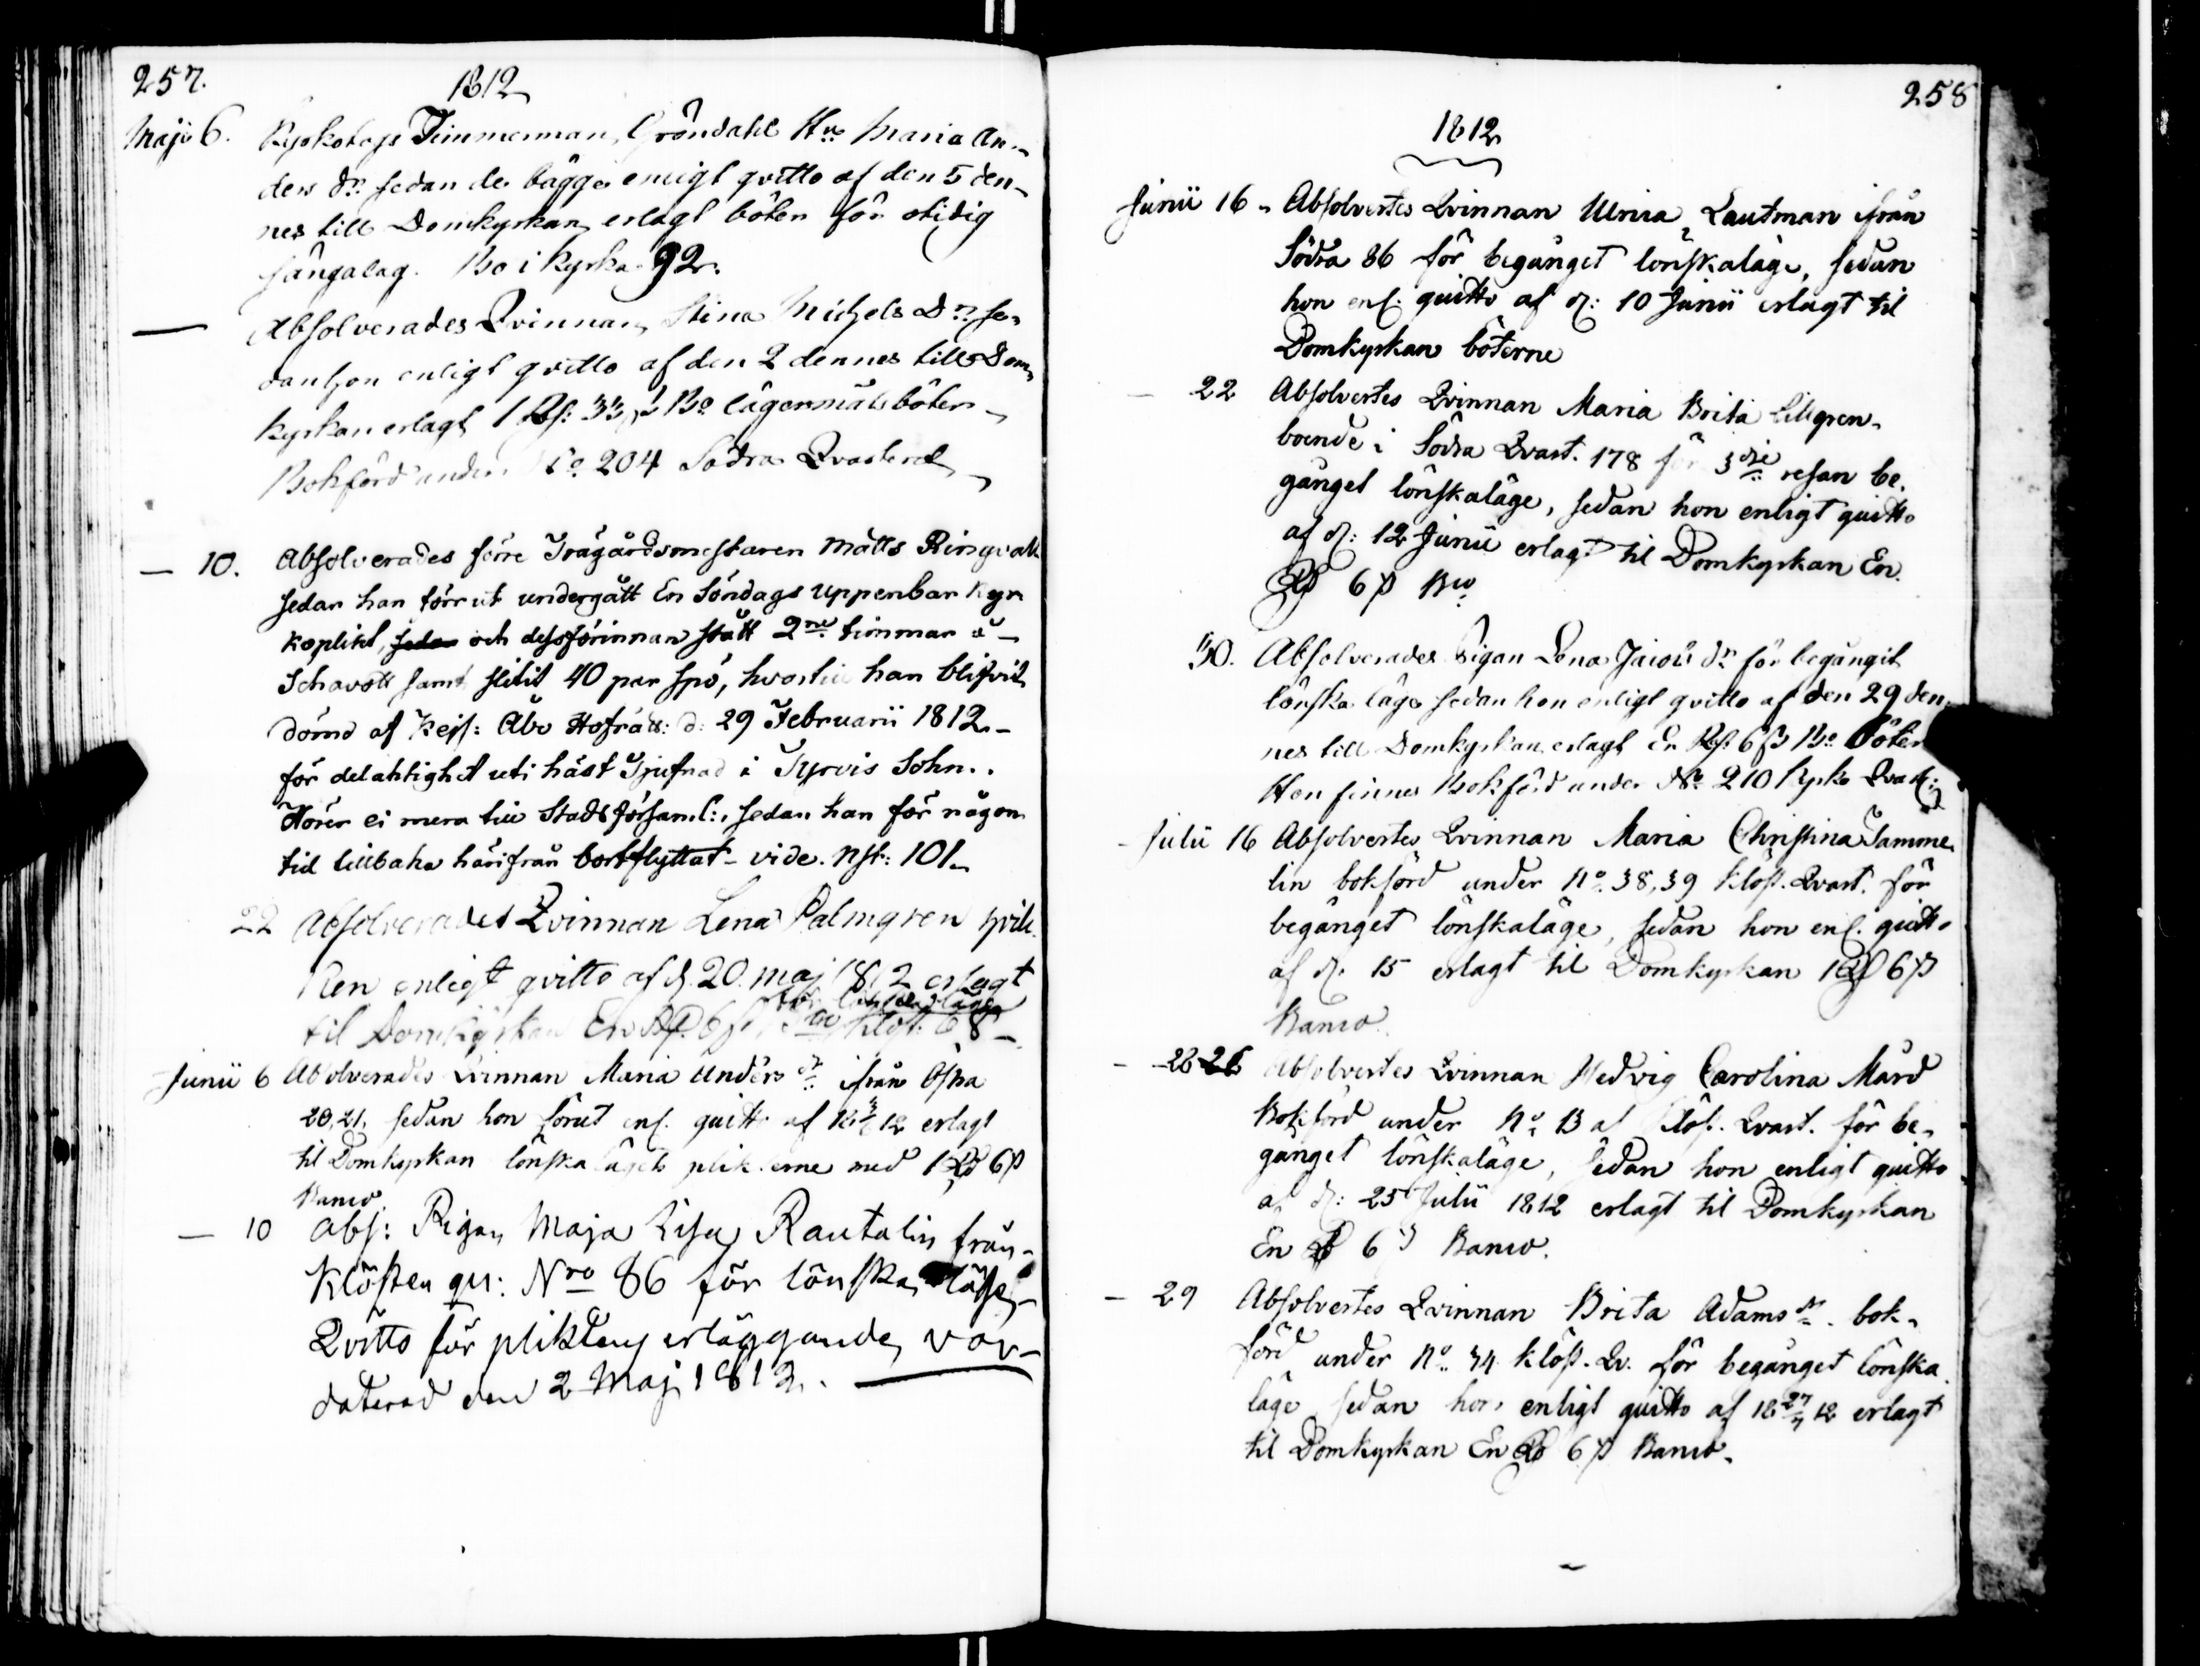 257.
1812
Maji 6. Timmerman Gröndahl Hu Maria An-
ders dr. sedan de bägge enligt qvitto af den 5 den-
nes till Domkyrkan erlagt böter för otidig
sängalag. Bo i Kyrko 92.
— Absolverades Qvinnan Stina Michels Dr. se-
dan hon enligt qvitto af den 2 dennes till Dom-
kyrkan erlagt 1 Rd: 33 ß Bo lägersmåls böter
Bokförd under No 204 Södra Qvarteret
— 10. Absolverades förre Trägårdsmestaren Matts Ringvall
sedan han förrut undergått En Söndags uppenbar Kyr
koplikt, sedan och dessförinnan stått 2ne timmar å
Schavott samt slitit 40 par spö, hvartill han blifvit
dömd af Kejs: Åbo Hofrätt: d: 29 Februarii 1812.
för delaktighet uti häst Tjufnad i Tyrvis Sokn..
Hörer ei mera till Stads församl:, sedan han för någon
tid tillbaka härifrån bortflyttat - vide. Nst: 101.
22 Absolverades Qvinnan Lena Palmgren hvil-
ken enligt qvitto af d. 20. maj 1812 erlagt
för lönskaläge
til Domkyrkan En Rd. 6 ß. Bco, Klöst. 68 -
Junii 6 Absolverades Qvinnan Maria Anders dr. ifrån Östra
20,21, sedan hon förut enl. quitto af 18 3/6 12 erlagt
til Domkyrkan lönskalägets plikterne med 1 Rd 6 ß
Banco
— 10 Abs: Pigan Maja Lisa Rautalin från
Klöster qu: Nro 86 för lönskaläge
Qvitto för pliktens erläggande var
daterad den 2 Maj 1812.
258
1812
Junii 16. Absolvertes Qvinnan Ulrica Lautman ifrån
Södra 86 för begånget lönskaläge, sedan
hon enl. quitto af d: 10 Junii erlagt til
Domkyrkan böterne
— 22 Absolvertes Qvinnan Maria Brita Lillgren
boende i Södra Qvart. 178 för 3dje resan be-
gånget lönskaläge, sedan hon enligt quitto
af d: 12 Junii erlagt til Domkyrkan En
Rd 6 ß Bco
30. Absolverades Pigan Lena Jacobs dr för begångit
lönskaläge sedan hon enligt qvitto af den 29 den-
nes till Domkyrkan erlagt En Rd. 6 ß Bo Böter
Hon finnes Bokförd under No. 210 Kyrko Qvart:
Julii 16 Absolvertes Qvinnan Maria Christina Tamme-
lin bokförd under No. 38,39 Klöst. Qvart. för
begånget lönskaläge, sedan hon enl. quitto
af d. 15 erlagt til Domkyrkan 1 Rd 6 ß
Banco.
— 26 Absolvertes Qvinnan Hedvig Carolina Mård
Bokförd under No 13 a Klöst. Qvart. för be-
gånget lönskaläge, sedan hon enligt quitto
af d: 25 Julii 1812 erlagt til Domkyrkan
En Rd 6 ß Banco.
— 29 Absolvertes Qvinnan Brita Adams dr. bok-
förd under No 34 Klöst. Qv. för begånget lönska
läge sedan hon enligt quitto af 18 27/7 12 erlagt
til Domkyrkan En Rd 6 ß Banco.